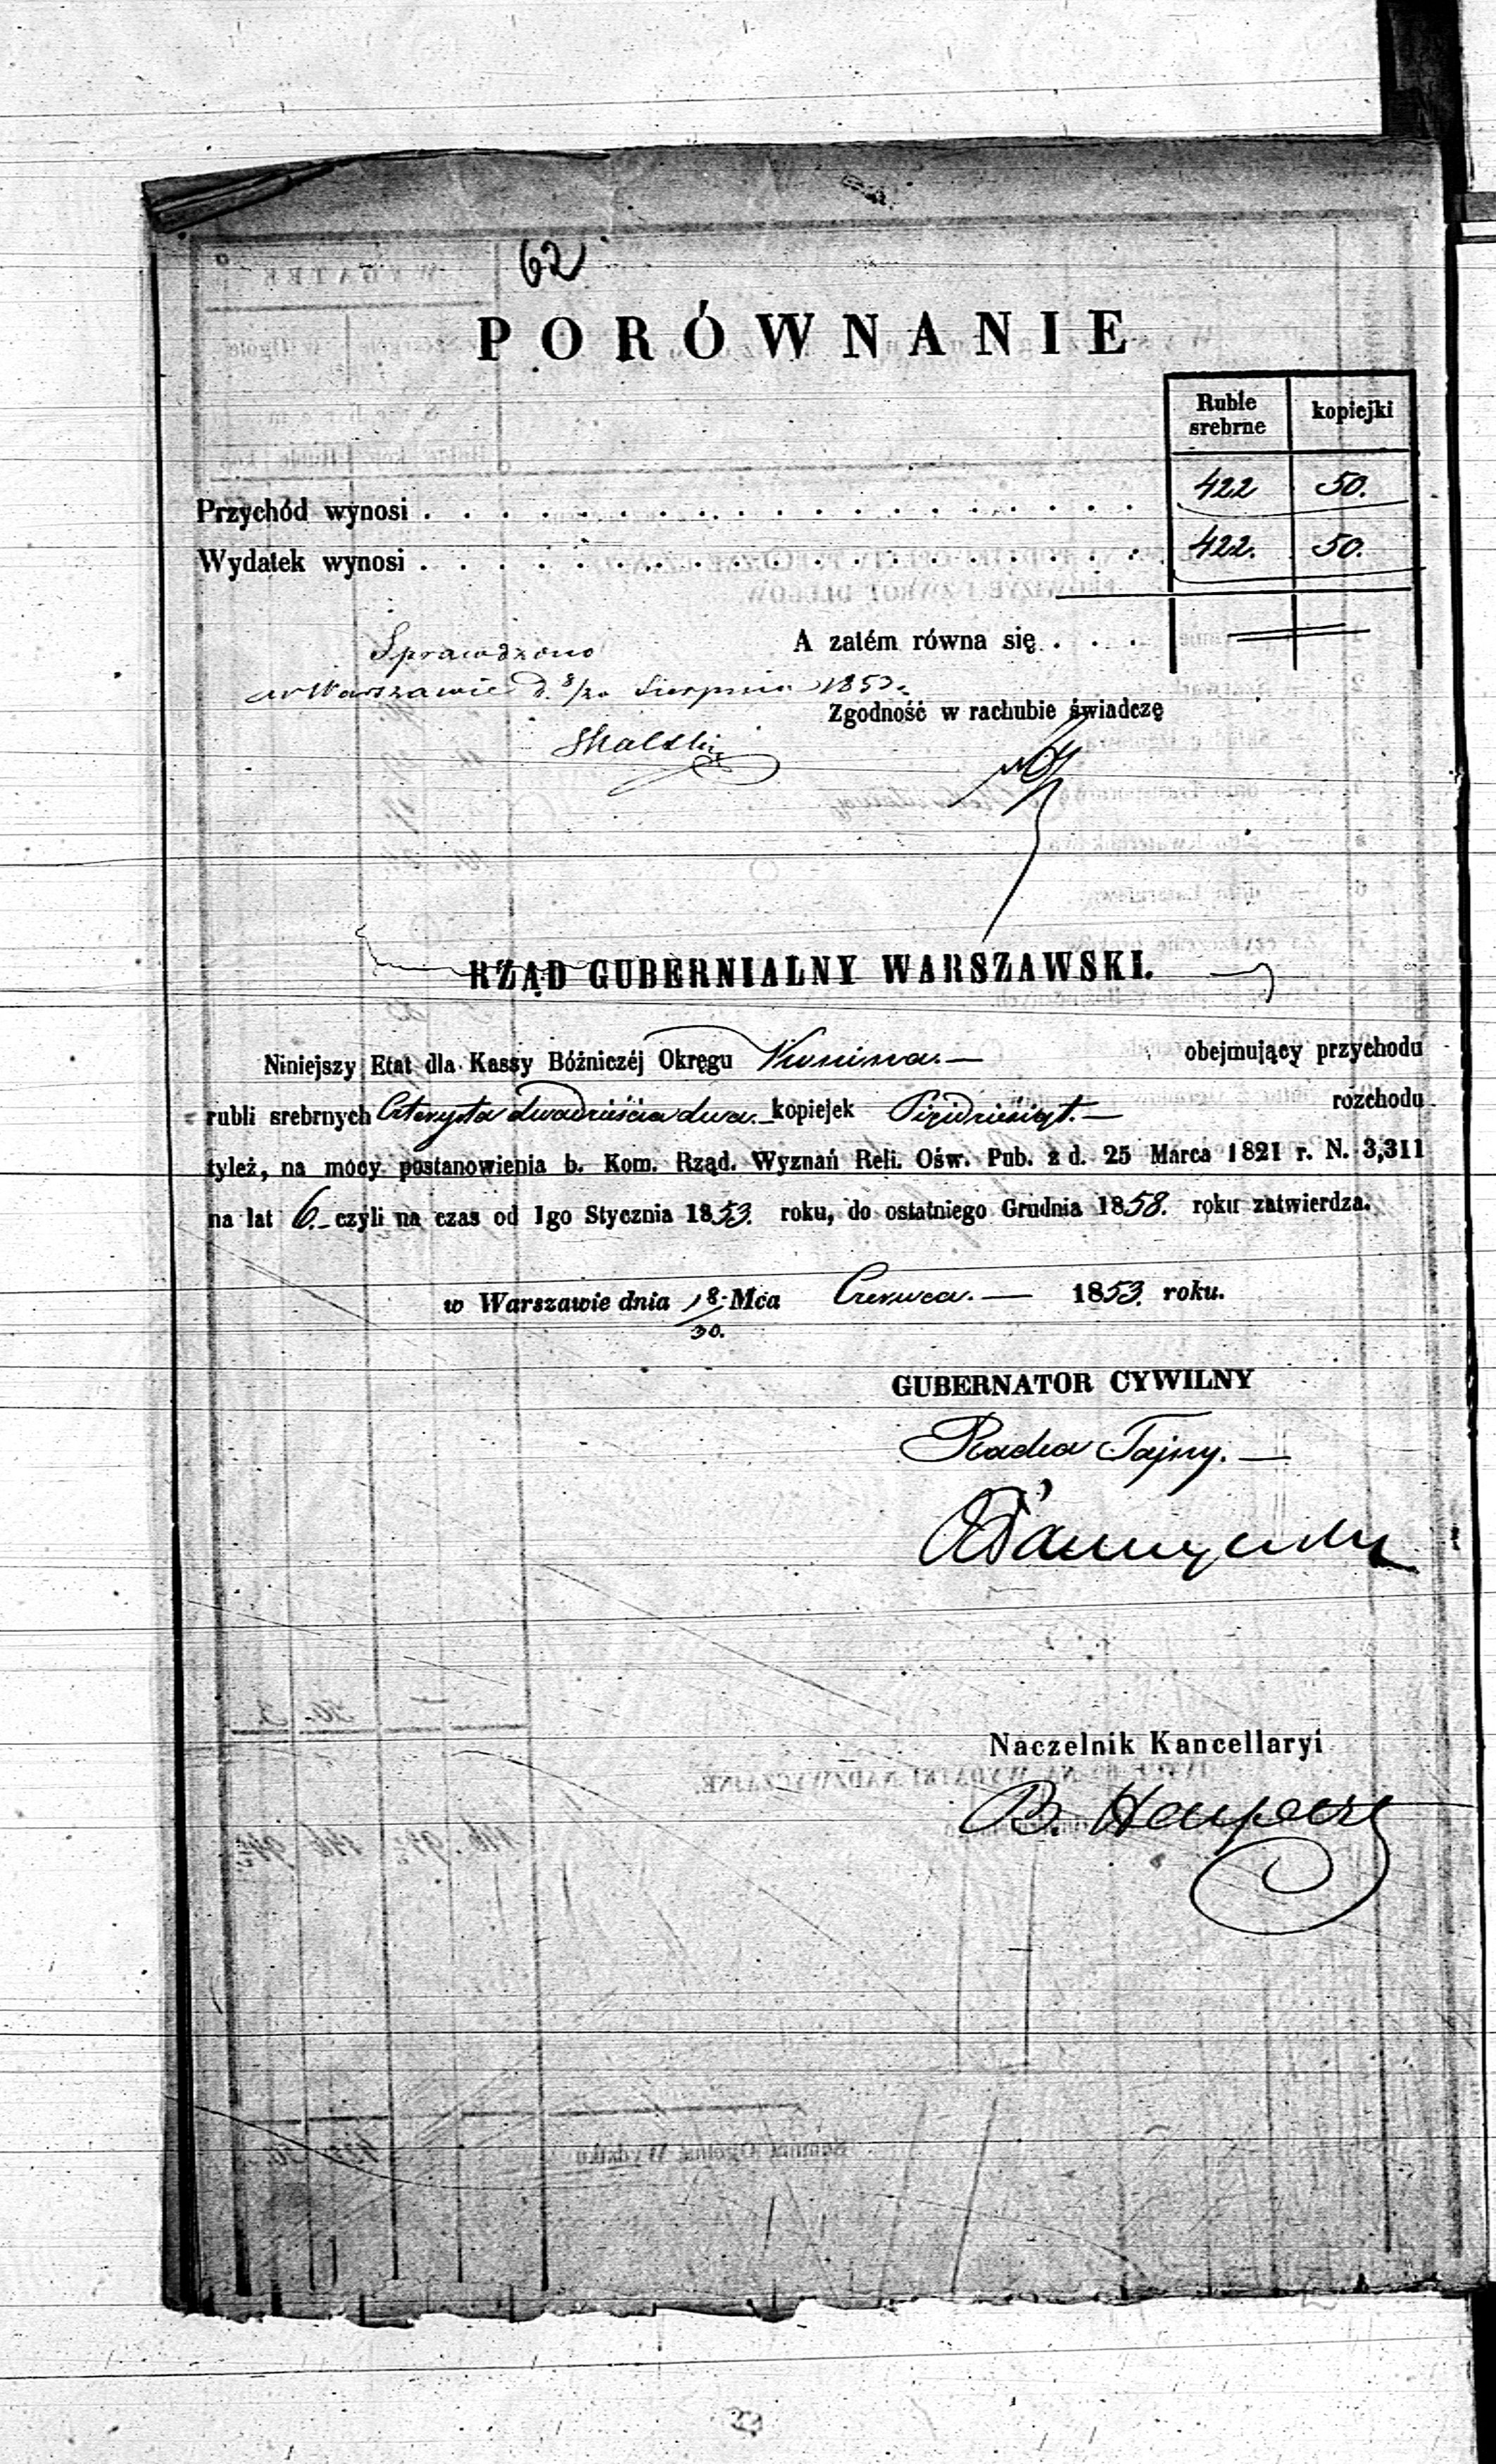 62
PORÓWNANIE
Ruble srebrne kopiejki
Przychód wynosi . . . . . . . . . . . . . . . . . . 422 50.
Wydatek wynosi . . . . . . . . . . . . . . . . . . 422. 50.
A zatém równa się . . .
Sprawdzono
w Warszawie d. 8/20 Sierpnia 1853.
Zgodność w rachubie świadczę
RZĄD GUBERNIALNY WARSZAWSKI.
Niniejszy Etat dla Kassy Bóżniczéj Okręgu obejmujący przychodu
rubli srebrnych Czterysta dwadzieścia dwa.— kopiejek Pięćdziesiąt.— rozchodu
tyleż, na mocy postanowienia b. Kom. Rząd. Wyznań Reli. Ośw. Pub. z d. 25 Marca 1821 r. N. 3,311
na lat 6.— czyli na czas od 1go Stycznia 1853. roku, do ostatniego Grudnia 1858. roku zatwierdza.
w Warszawie dnia 18/30. Mca Czerwca.— 1853. roku.
GUBERNATOR CYWILNY
Radca Tajny.—
Naczelnik Kancellaryi
B.